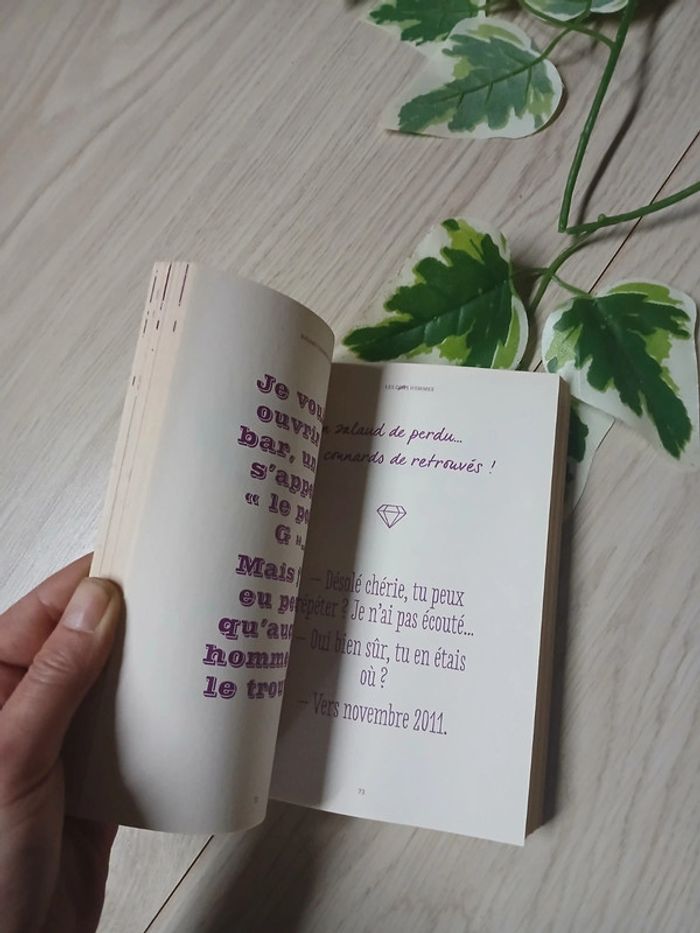 Je vou
ouvrir
bar, un
s'appe
« le po
G ».
Mais j
eu pe
qu'auc
homme
le trou
LES HOMMES
salaud de perdu...
connards de retrouvés !
– Désolé chérie, tu peux
répéter ? Je n'ai pas écouté...
– Oui bien sûr, tu en étais
où ?
– Vers novembre 2011.
73